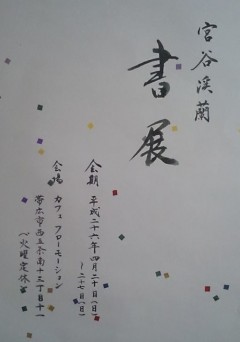 宮谷渓蘭
書展
会期 平成二十六年四月二十日(日)
~二十七日(日)
会場 カフェフローモーション
帯広市西五条南十三丁目十一
(火曜定休)